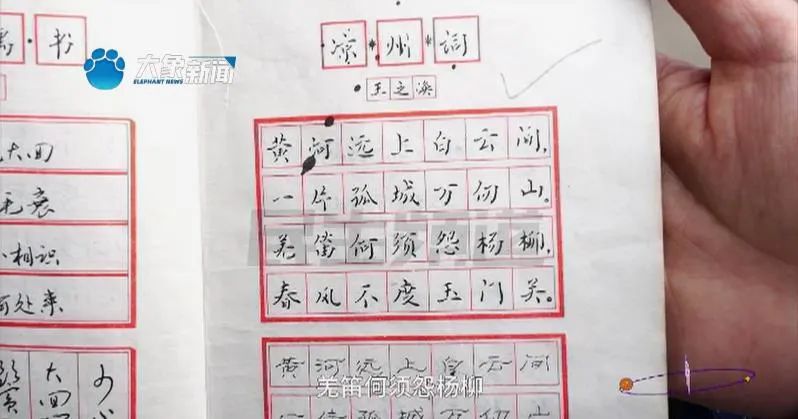 大象新闻
ELEPHANT NEWS
书
大回
毛衰
相识
何处来
大回
凉州词
王之涣
黄河远上白云间,
一片孤城万仞山。
羌笛何须怨杨柳,
春风不度玉门关。
民生频道
黄河远上白云间
一片孤城万仞山
羌笛何须怨杨柳